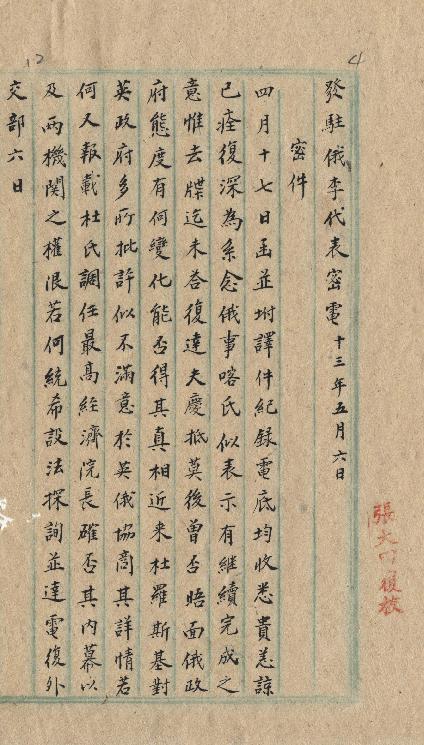 發駐俄李代表密電 十三年五月六日
密件
四月十七日函並坿譯件紀錄電底均收悉貴恙諒
已痊復深為系念俄事喀氏似表示有継續完成之
意惟去牒迄未荅復達夫慶抵莫後曾否晤面俄政
府態度有何變化能否得其真相近來杜羅斯基對
英政府多所批許似不滿意於英俄協商其詳情若
何又報載杜氏調任最高經濟院長確否其內幕以
及兩機関之權限若何統希設法探詢並達電復外
交部六日
張大 復校
12
4